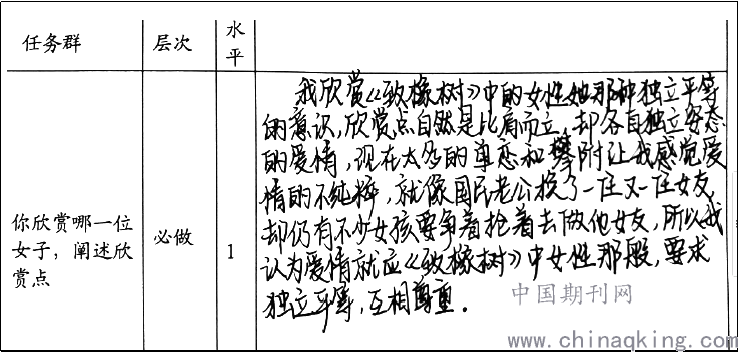 任务群 层次 水平
你欣赏哪一位女子，阐述欣赏点 必做 1
我欣赏《致橡树》中的女性她那种独立平等
的意识，欣赏点自然是比肩而立，却各自独立姿态
的爱情，现在太多的单恋和攀附让我感觉爱
情的不纯粹，就像国民老公换了一任又一任女友
却仍有不少女孩要争着抢着去做他女友，所以我
认为爱情就应《致橡树》中女性那般，要求
独立平等，互相尊重．
中国期刊网
www.chinaqking.com